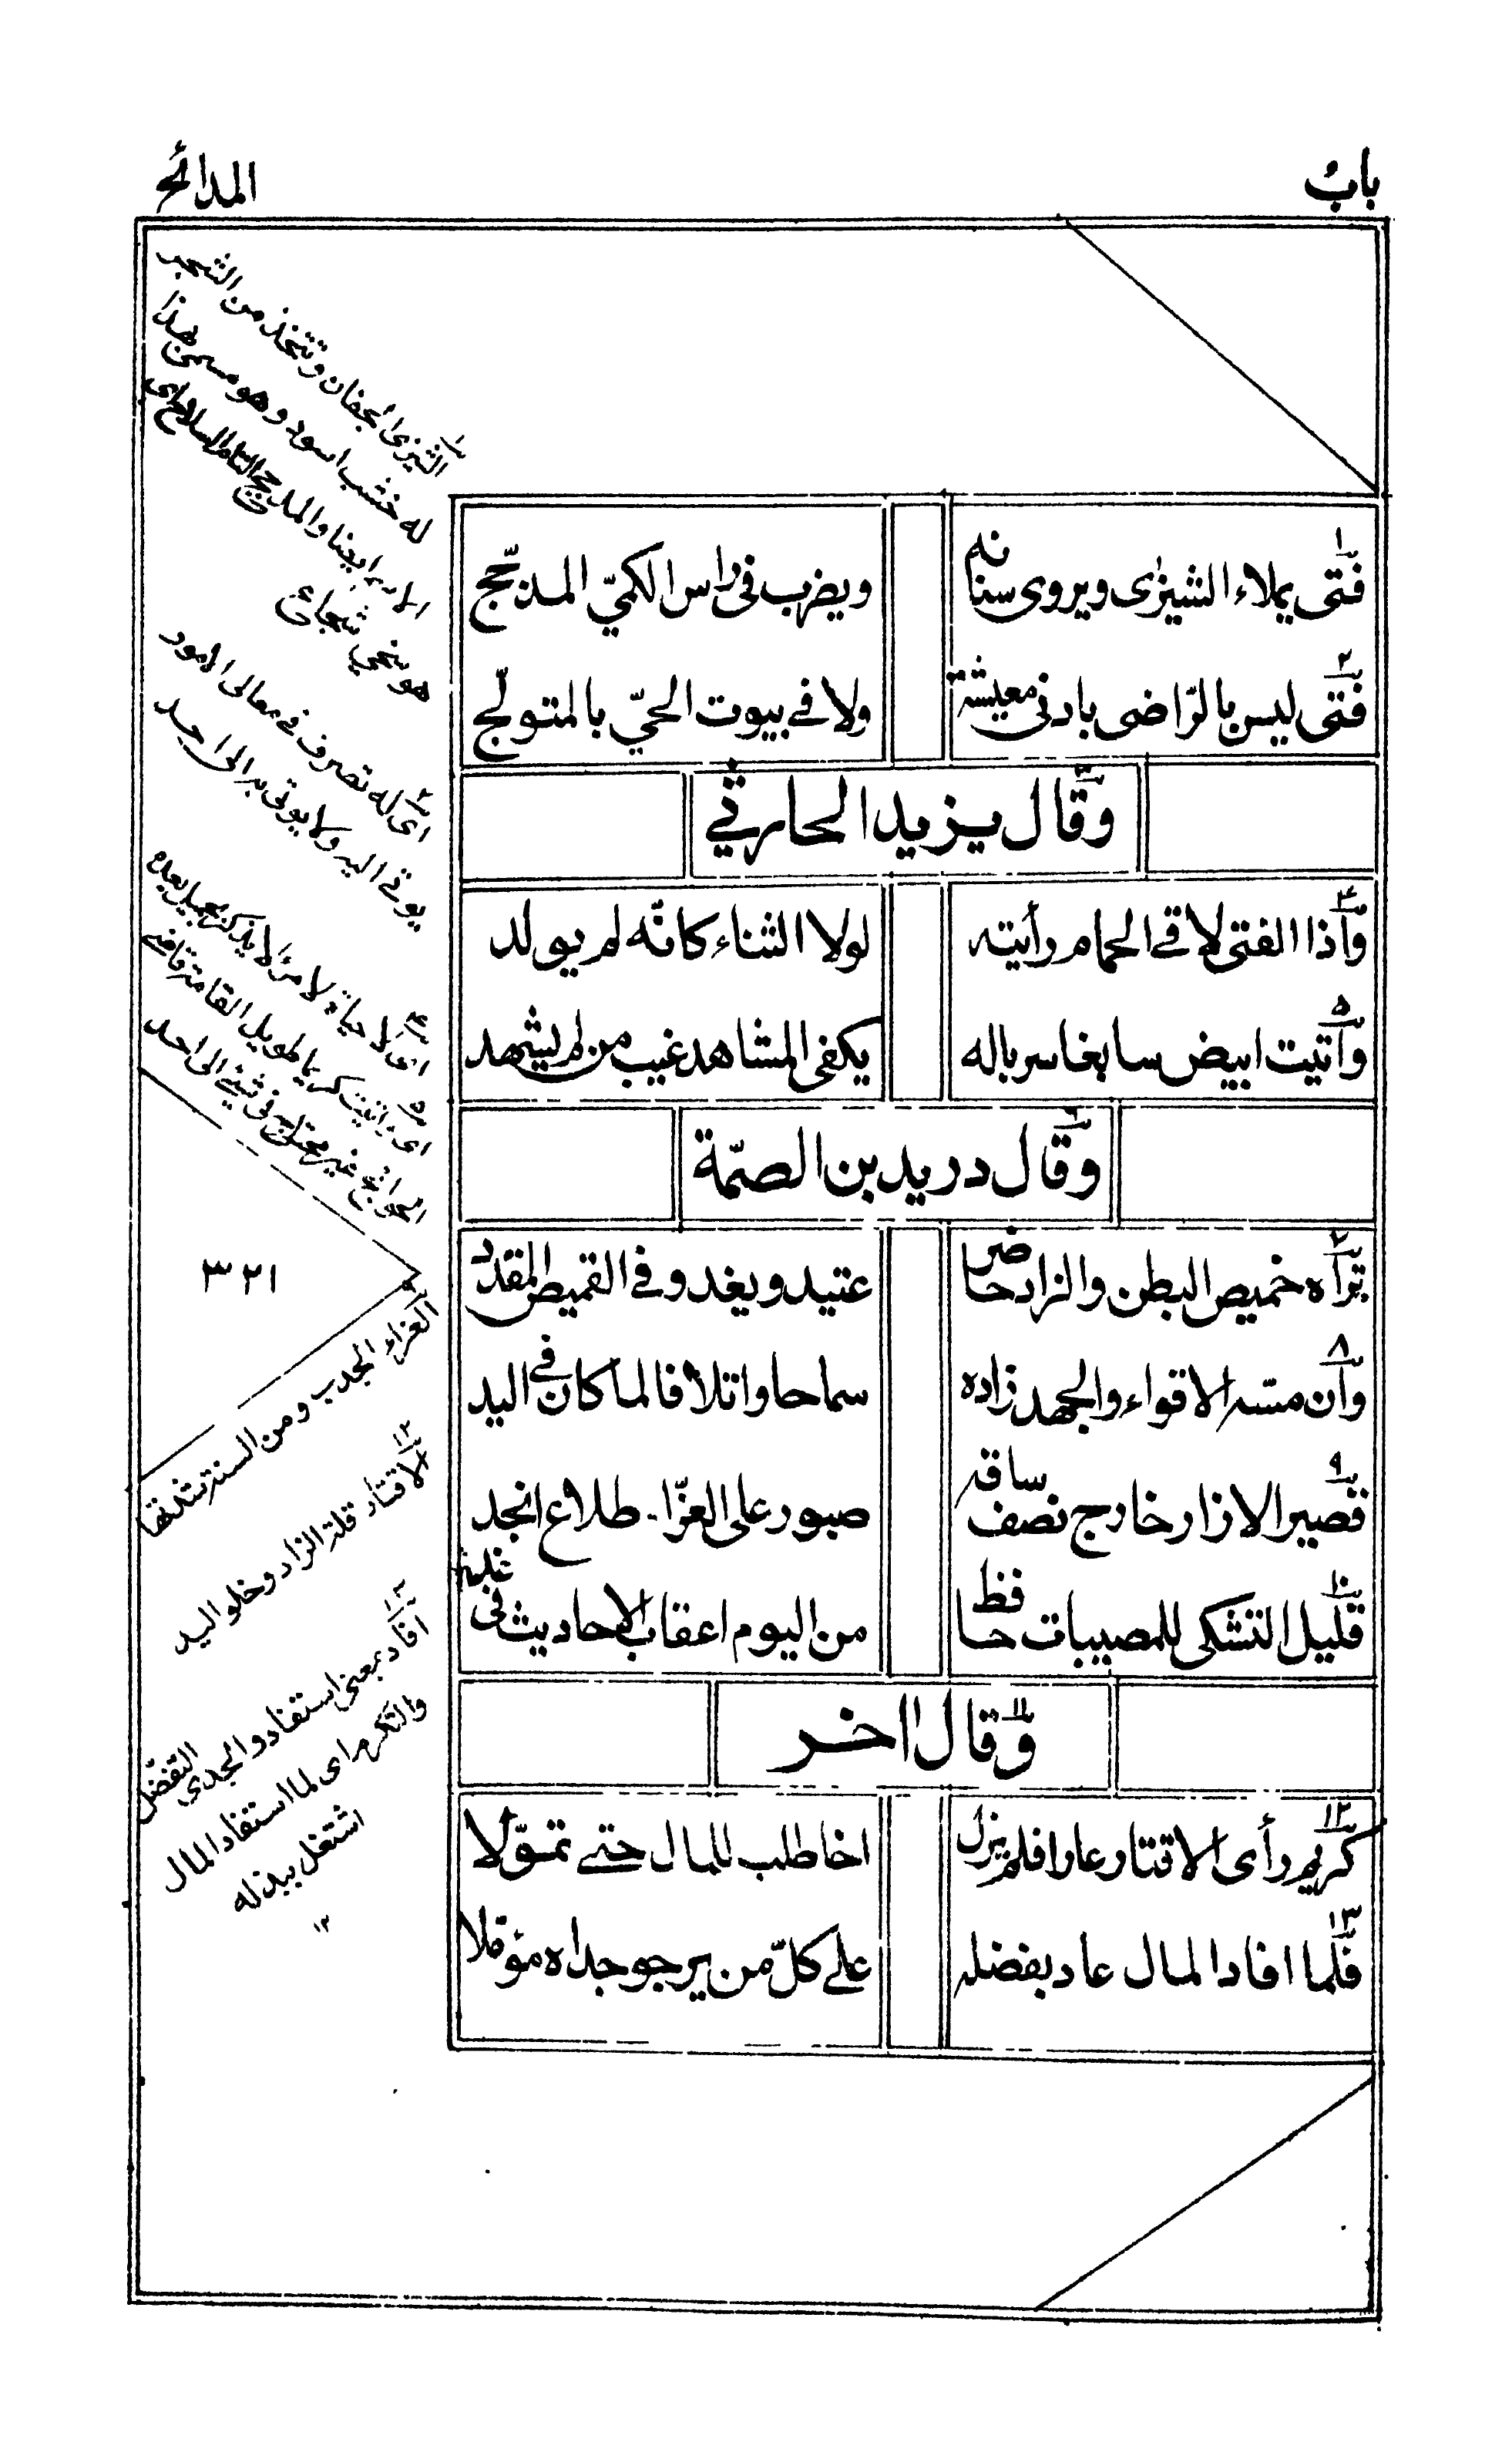 باب
المدائح
١ فتى يملاء الشيزى ويروى سنانه
ويضرب فى راس الكمىّ المدجّج
٢ فتى ليس بالرّاضى بادنى معيشة
ولا فے بيوت الحىّ بالمتولّج
٣ وقال يزيد الحارثي
٤ واذا الفتى لاقے الحمام رأيته
لولا الثناء كانّه لم يولد
٥ واتيت ابيض سابغا سرباله
يكفى المشاهد غيب من لم يشهد
٦ وقال دريد بن الصمّة
٧ تراه خميص البطن والزاد حاضر
عتيد ويغدو فے القميص المقدد
٨ وان مسّه الاقواء والجهد زاده
سماحا واتلافا لما كان فے اليد
٩ قصير الازار خارج نصف ساقه
صبور على العزّاء طلاع انجد
١٠ قليل التشكى للمصيبات حافظ
من اليوم اعقاب الاحاديث فى غد
١١ وقال اخر
١٢ كريم رأى الاقتار عارا فلم يزل
اخا طلب للمال حتے تموّلا
١٣ فلما افاد المال عاد بفضله
علے كلّ من يرجو جداه مؤملا
١ الشيزى الجفان وتتخذ من الشجر
له خشب اسود وهو مسمى بهذا
الاسم ايضا والمدجج التام السلاح اى
هو سخي شجاع
٢ اى له تصرف فے معالى الامور
يوتے اليه ولا يوتى به الى احد
٤ اى لا حياة لامرئ لا يذكر بجميل بعده
٥ اى واتيت كريما طويل القامة قاضے
الحوائج غير محتاج فى شئے الى احد
٣٢١
٩ العزاء الجدب ومن السنة شدتها
١٢ الاقتار قلة الزاد وخلو اليد
١٣ افاد بمعنى استفاد والجدى التفضّل
والتكرم اى لما استفاد المال
اشتغل ببذله
١٢